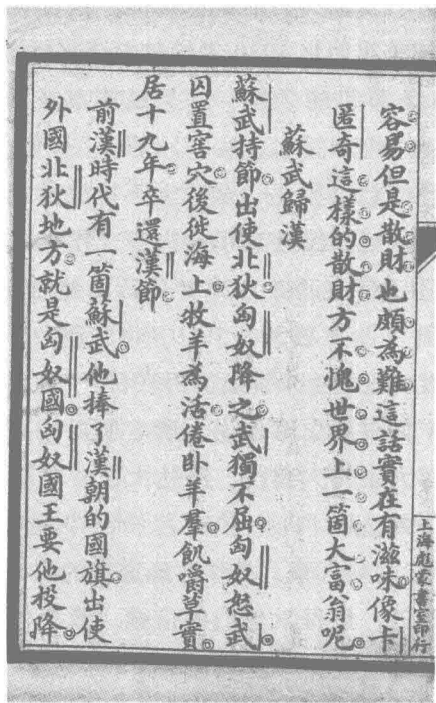 容易但是散財也頗為難這話實在有滋味像卡
匿奇這樣的散財方不愧世界上一箇大富翁呢
蘇武歸漢
蘇武持節出使北狄匈奴降之武獨不屈匈奴怒武
囚置窖穴後徙海上牧羊為活倦卧羊羣飢嚼草實
居十九年卒還漢節
前漢時代有一箇蘇武他捧了漢朝的國旗出使
外國北狄地方就是匈奴國匈奴國王要他投降
上海彪蒙書室印行